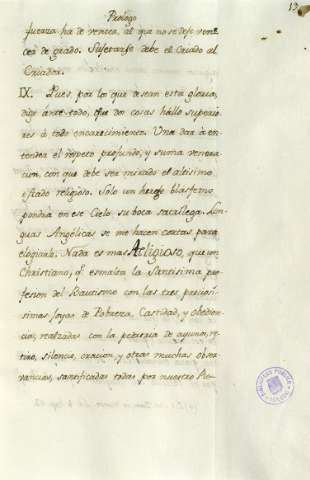 Prologo
13
fuerza ha de vencer, al que no se deje ven-
cer de grado. Sujetarse debe el Criado al
Criador.
IX. Pues, por los que desean esta gloria,
digo ante todo, que dos cosas hallo superio-
res à todo encarecimiento. Una dar à en-
tender el respeto profundo, y suma venera-
cion, con que debe ser mirado el altisimo
estado religioso. Solo un herege blasfemo
pondria en ese Cielo su boca sacrilega. Len-
guas Angélicas se me hacen cortas para
elogiarlo. Nada es mas Religioso, que un
Christiano, q.e esmalta la Santisima pro-
fesion del Bautismo con las tres precios-
isimas joyas de Pobreza, Castidad, y obedien-
cia; realzadas con la pedreria de ayuno, re-
tiro, silencio, oracion, y otras muchas obser-
vancias, santificadas todas por nuestro Re-
BIBLIOTECA PUBLICA